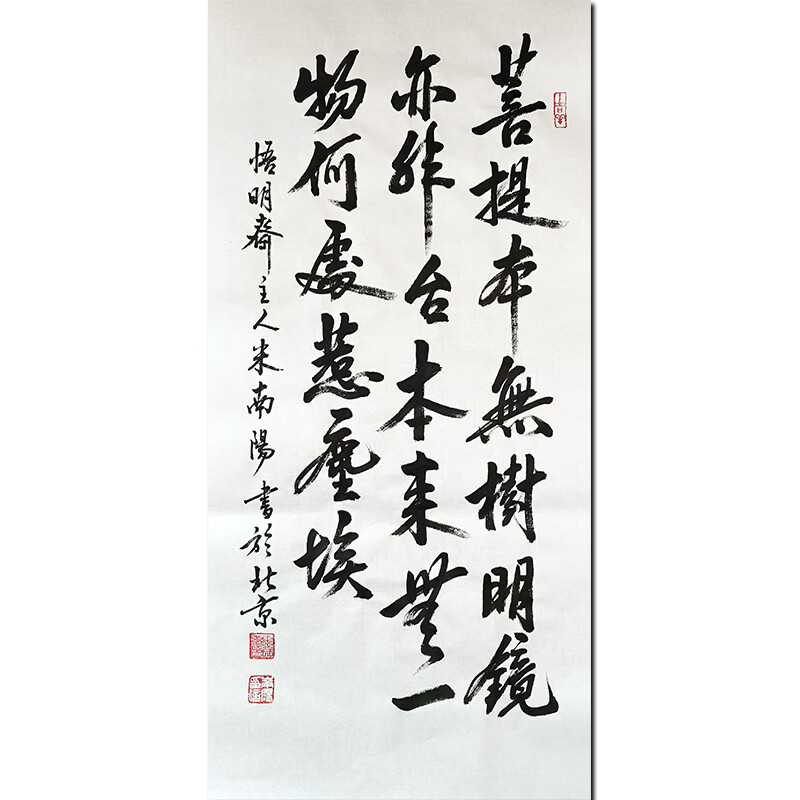 菩提本無樹明鏡
亦非台本来無一
物何處惹塵埃
悟明齋主人米南陽書於北京